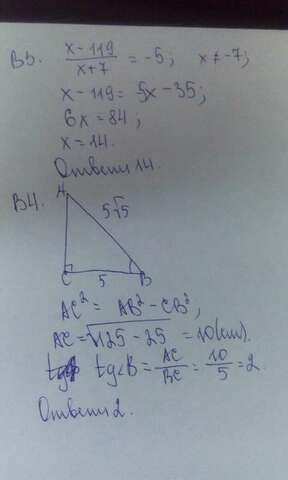 В3. x-119/x+7 = -5; x≠-7;
x-119=5x-35;
6x=84;
x=14.
Ответ: 14.
В4. A
5√5
C 5 B
AC² = AB² - CB²,
AC=√125-25 = 10(см).
tg<B = AC/BC = 10/5 = 2.
Ответ: 2.